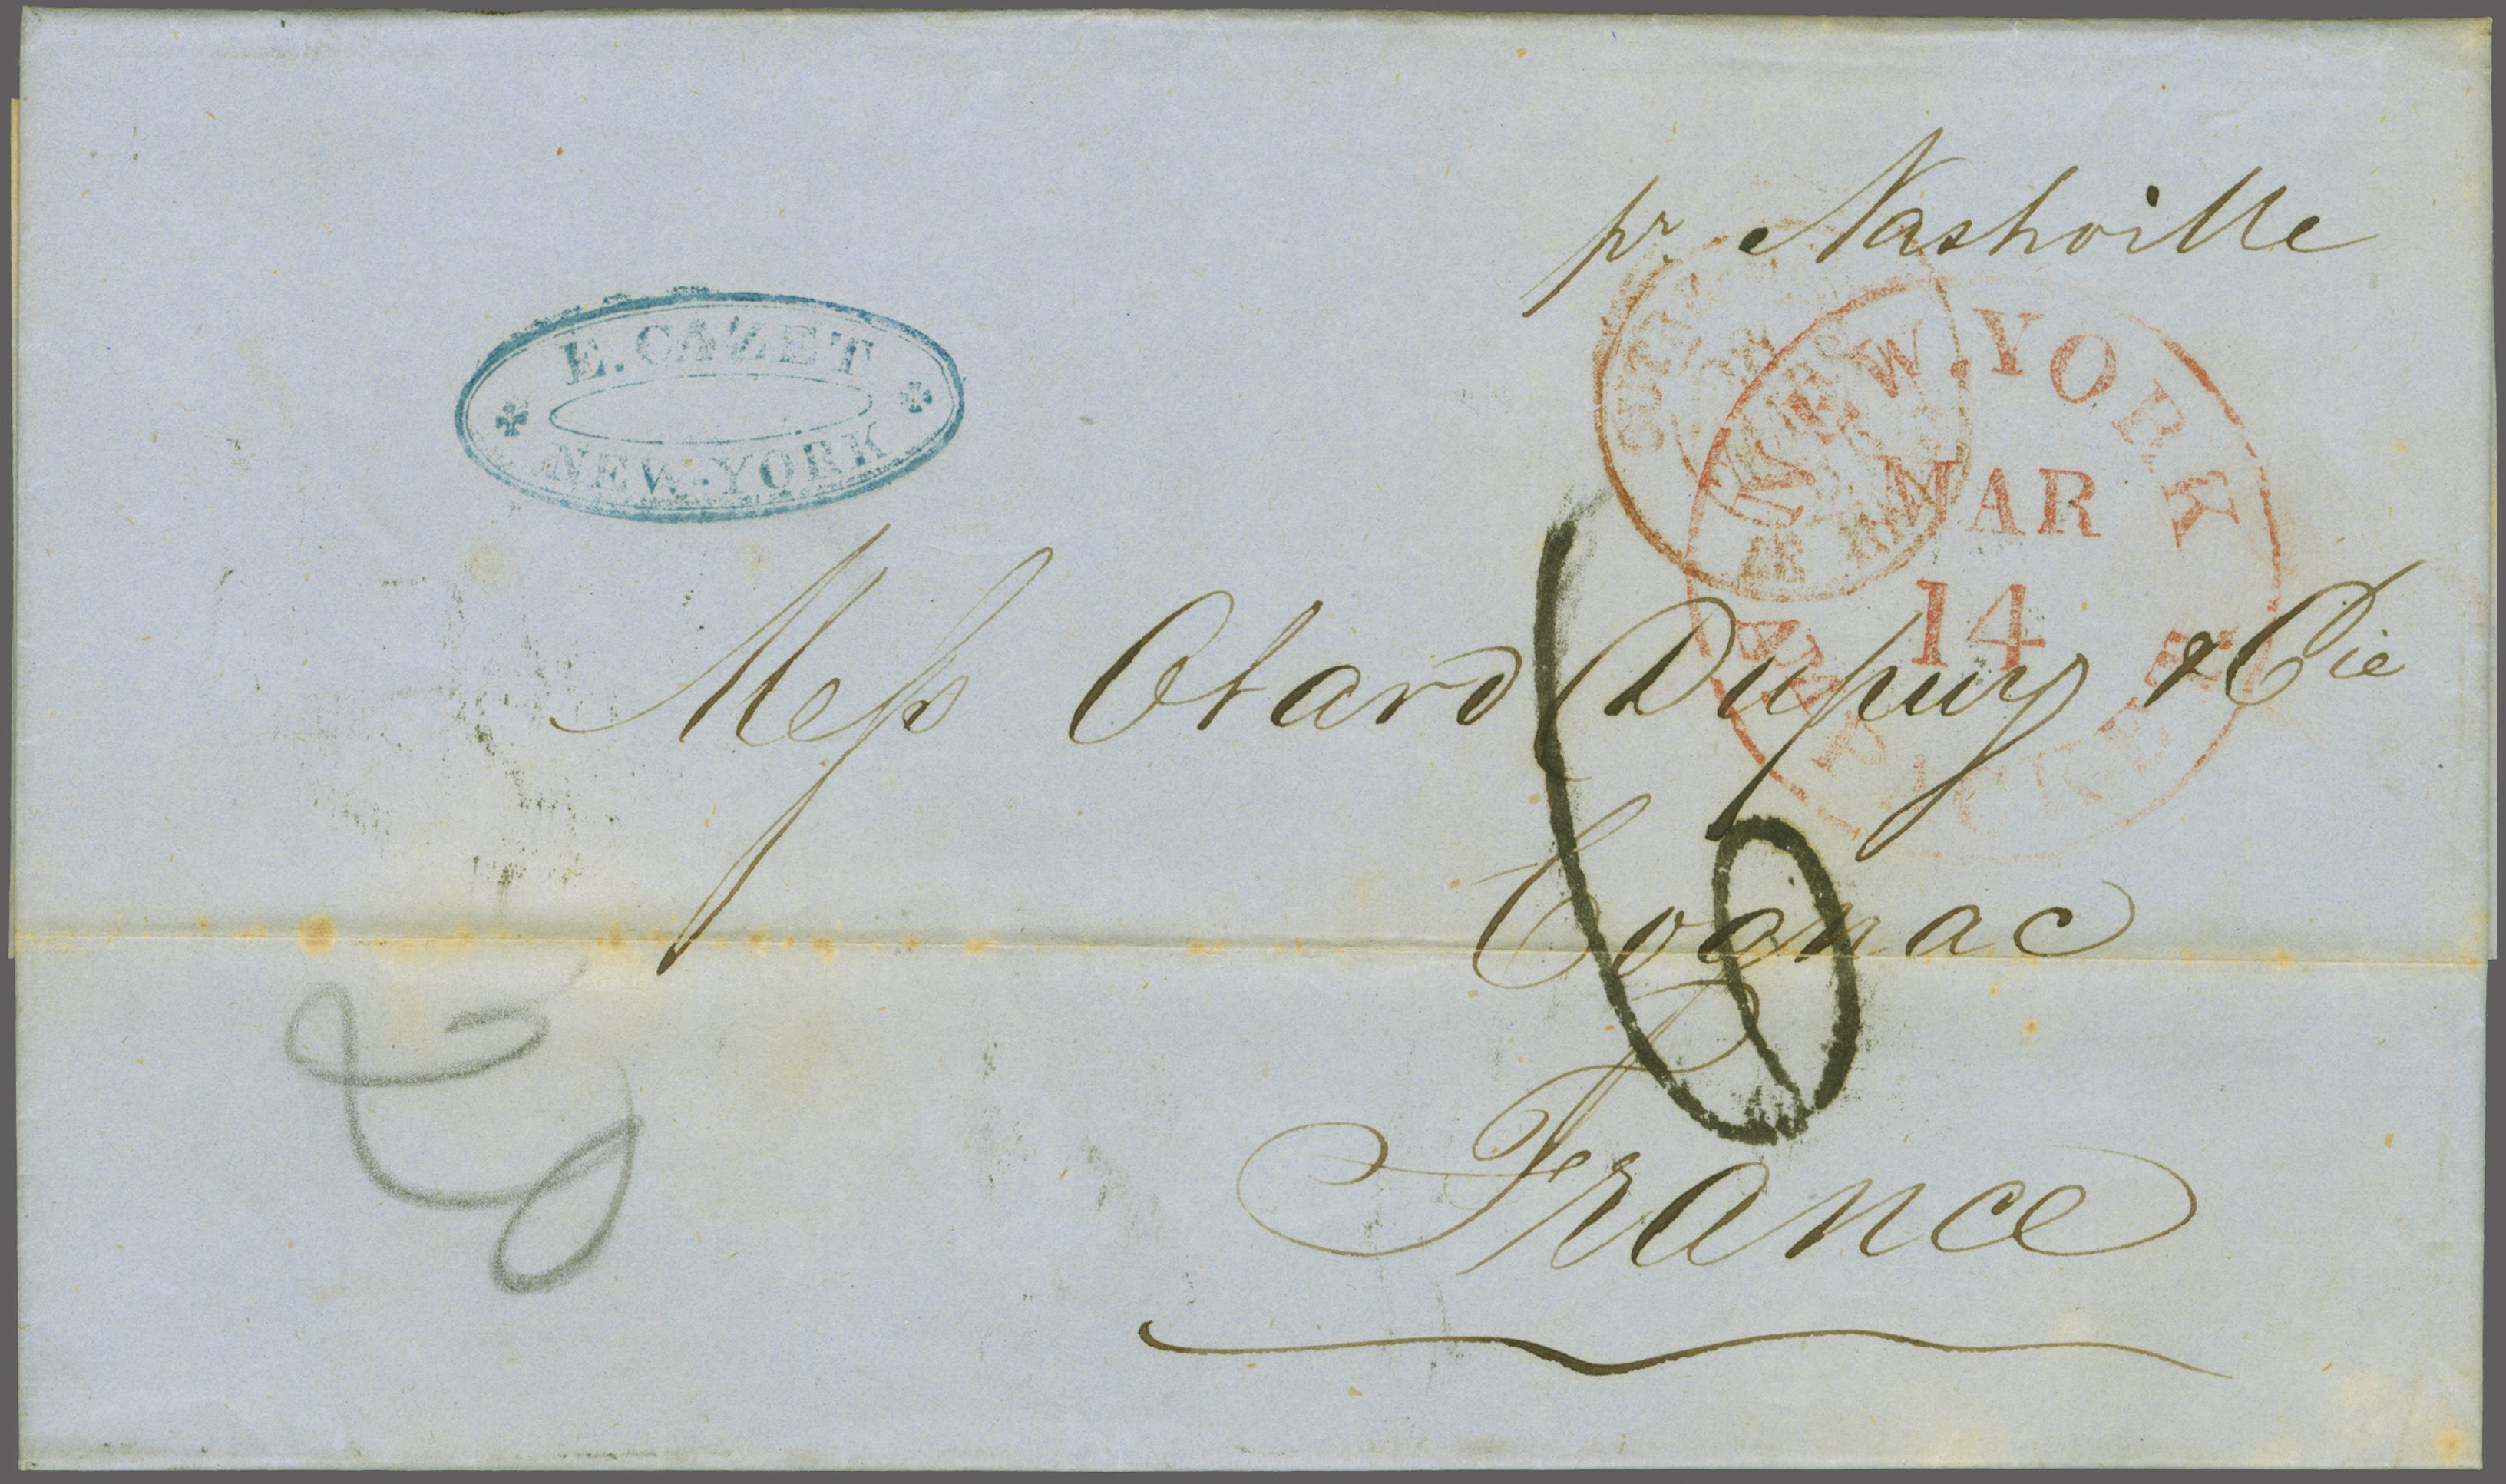 pr. Nashville
E. CAZET
NEW-YORK
NEW. YORK
MAR
14
AM. PACKET
Mess Otard Dupuy & Cie
Cognac
France